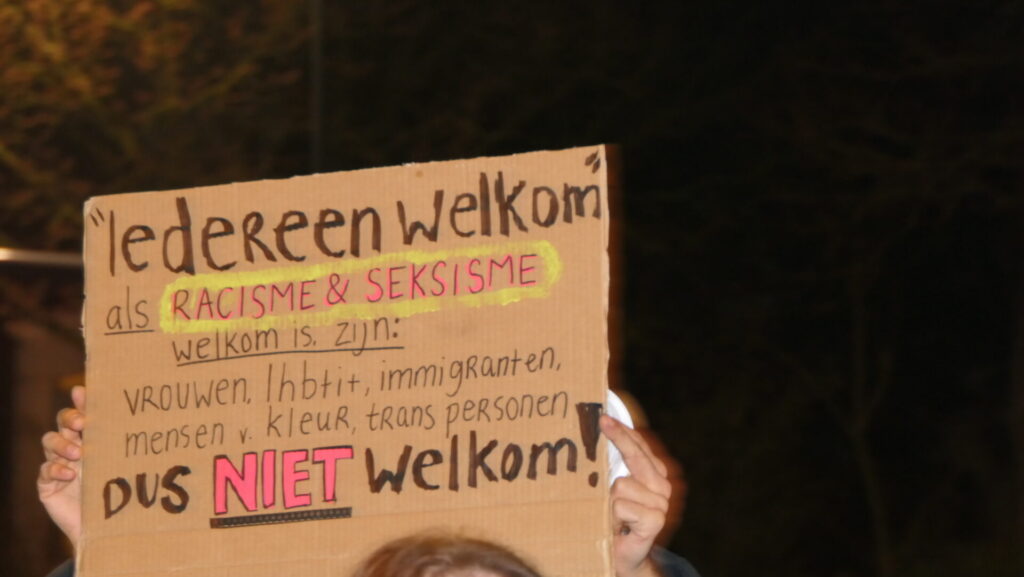 "Iedereen welkom"
als RACISME & SEKSISME
welkom is, zijn:
vrouwen, lhbti+, immigranten,
mensen v. kleur, trans personen
DUS NIET welkom!